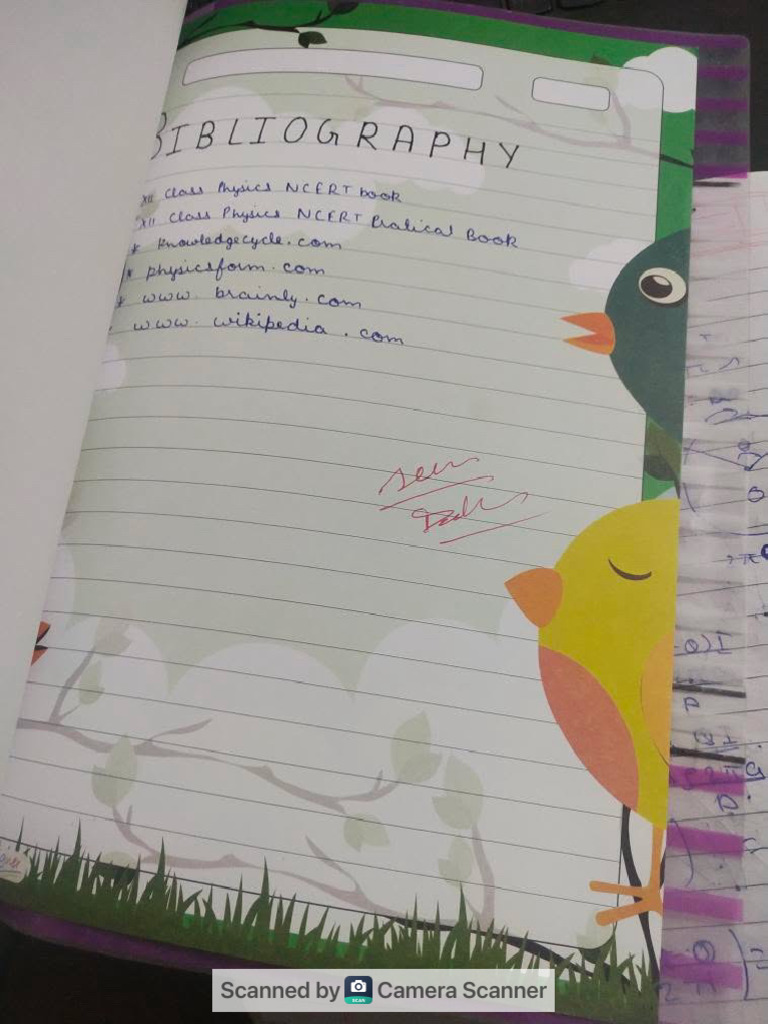 BIBLIOGRAPHY
XII Class Physics NCERT book
XII Class Physics NCERT Pratical Book
* knowledgecycle.com
* physicsform.com
* www.brainly.com
www.wikipedia.com
seen
Scanned by Camera Scanner